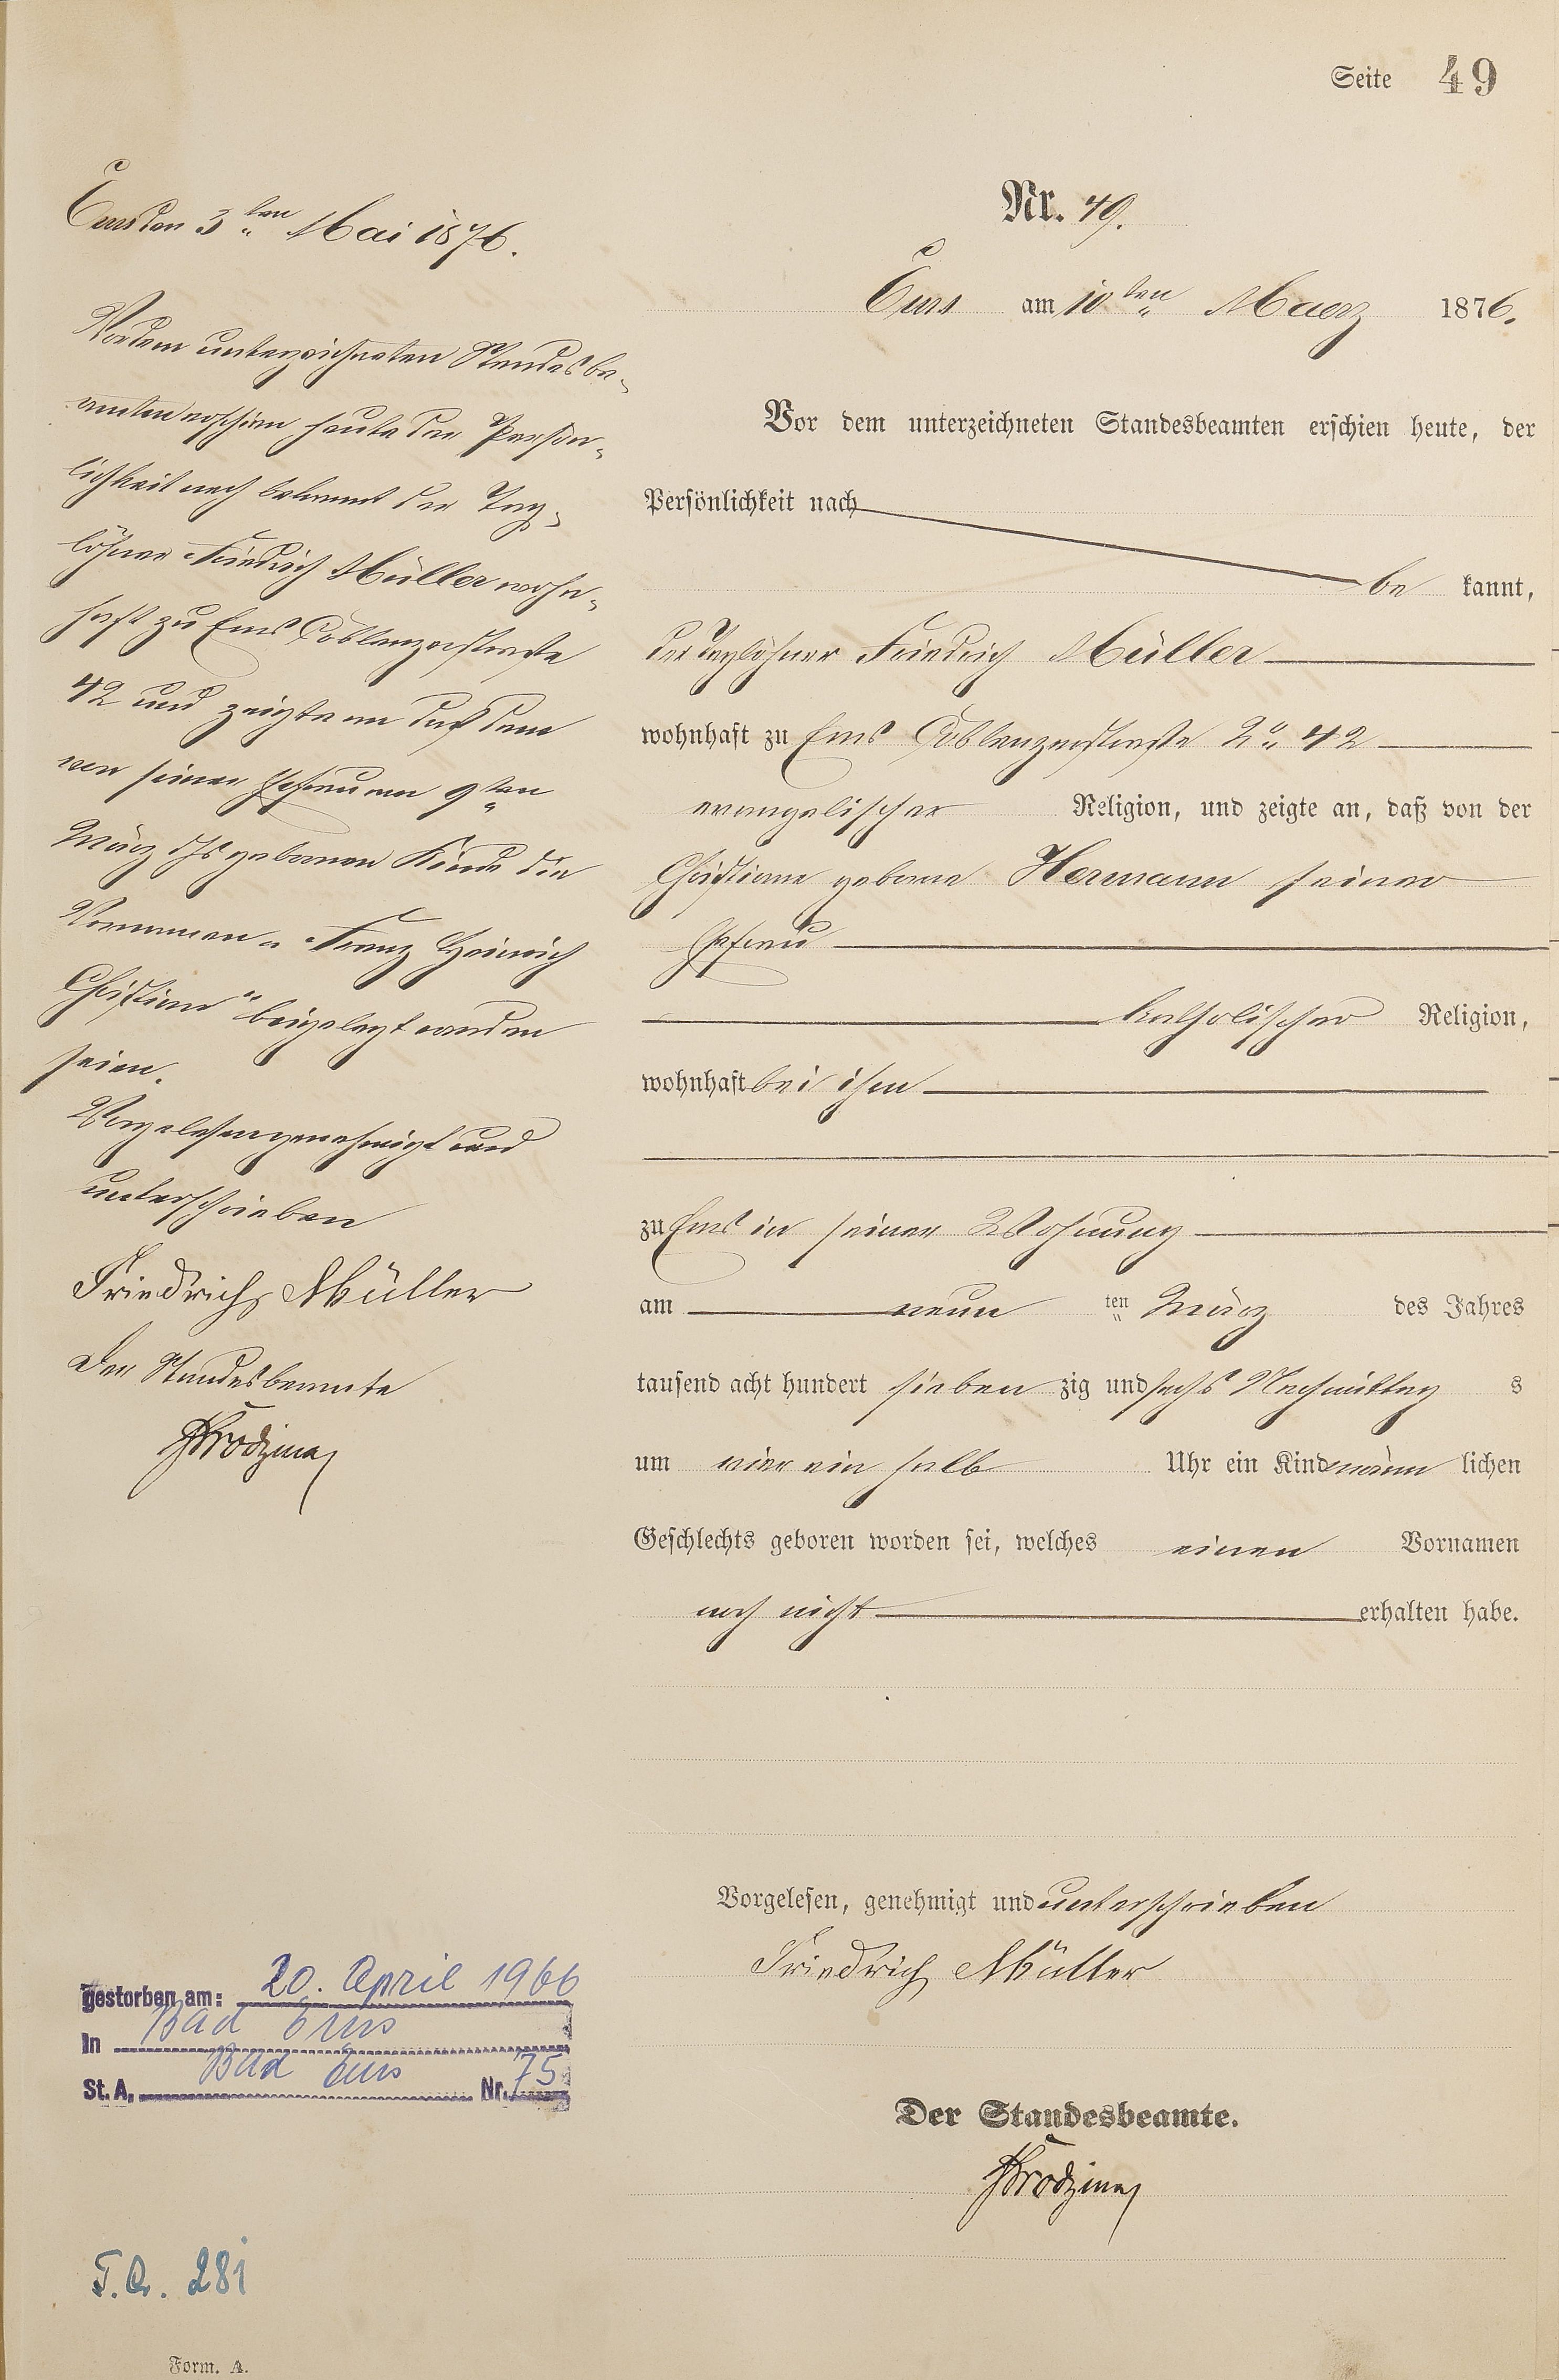 Seite 49
Nr. 49.
Ems am 10ten Maerz 1876.
Vor dem unterzeichneten Standesbeamten erschien heute, der
Persönlichkeit nach
be kannt,
der Taglöhner Friedrich Müller
wohnhaft zu Ems Coblenzerstraße No 42
evangelischer Religion, und zeigte an, daß von der
Christiane geborne Hermann seiner
Ehefrau
katholischer Religion,
wohnhaft bei ihm
zu Ems in seiner Wohnung
am neun ten März des Jahres
tausend acht hundert sieben zig und sechs Nachmittag s
um vier ein halb Uhr ein Kind männ lichen
Geschlechts geboren worden sei, welches einen Vornamen
noch nicht erhalten habe.
Vorgelesen, genehmigt und unterschrieben
Friedrich Müller
Der Standesbeamte.
Ems den 3ten Mai 1876.
Vor dem unterzeichneten Standesbe-
amten erschien heute der Persön-
lichkeit nach bekannt der Tag-
löhner Friedrich Müller wohn-
haft zu Ems Coblenzerstraße
42 und zeigte an daß dem
von seiner Ehefrau am 9ten
März ds geborenen Kinde die
Vornamen „Franz Heinrich
Christian" beigelegt worden
seien.
Vorgelesen genehmigt und
unterschrieben
Friedrich Müller
Der Standesbeamte
gestorben am: 20. April 1966
In Bad Ems
St. A. Bad Ems Nr. 75
F.A. 281
Form. A.